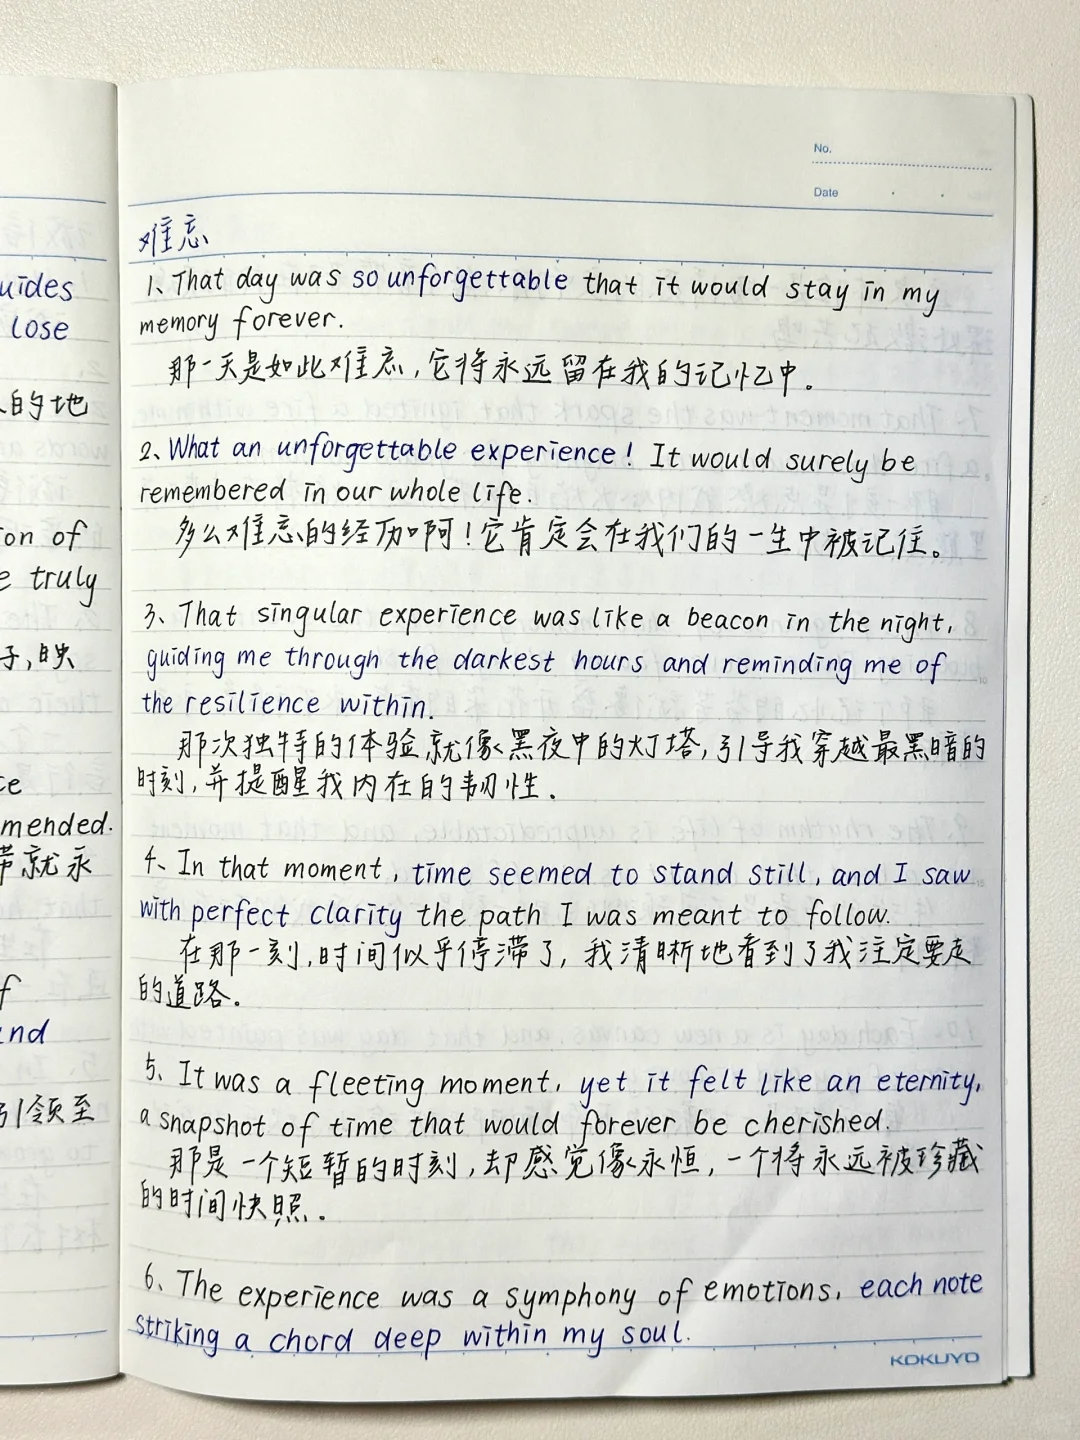 uides
lose
的地
on of
truly
子,映
ce
mended.
带就永
f
and
引领至
No.
Date
难忘
1、That day was so unforgettable that it would stay in my
memory forever.
那一天是如此难忘,它将永远留在我的记忆中。
2、What an unforgettable experience! It would surely be
remembered in our whole life.
多么难忘的经历啊!它肯定会在我们的一生中被记住。
3、That singular experience was like a beacon in the night,
guiding me through the darkest hours and reminding me of
the resilience within.
那次独特的体验就像黑夜中的灯塔,引导我穿越最黑暗的
时刻,并提醒我内在的韧性.
4、In that moment, time seemed to stand still, and I saw
with perfect clarity the path I was meant to follow.
在那一刻,时间似乎停滞了,我清晰地看到了我注定要走
的道路。
5、It was a fleeting moment, yet it felt like an eternity,
a snapshot of time that would forever be cherished.
那是一个短暂的时刻,却感觉像永恒,一个将永远被珍藏
的时间快照.
6、The experience was a symphony of emotions, each note
striking a chord deep within my soul.
KOKUYO